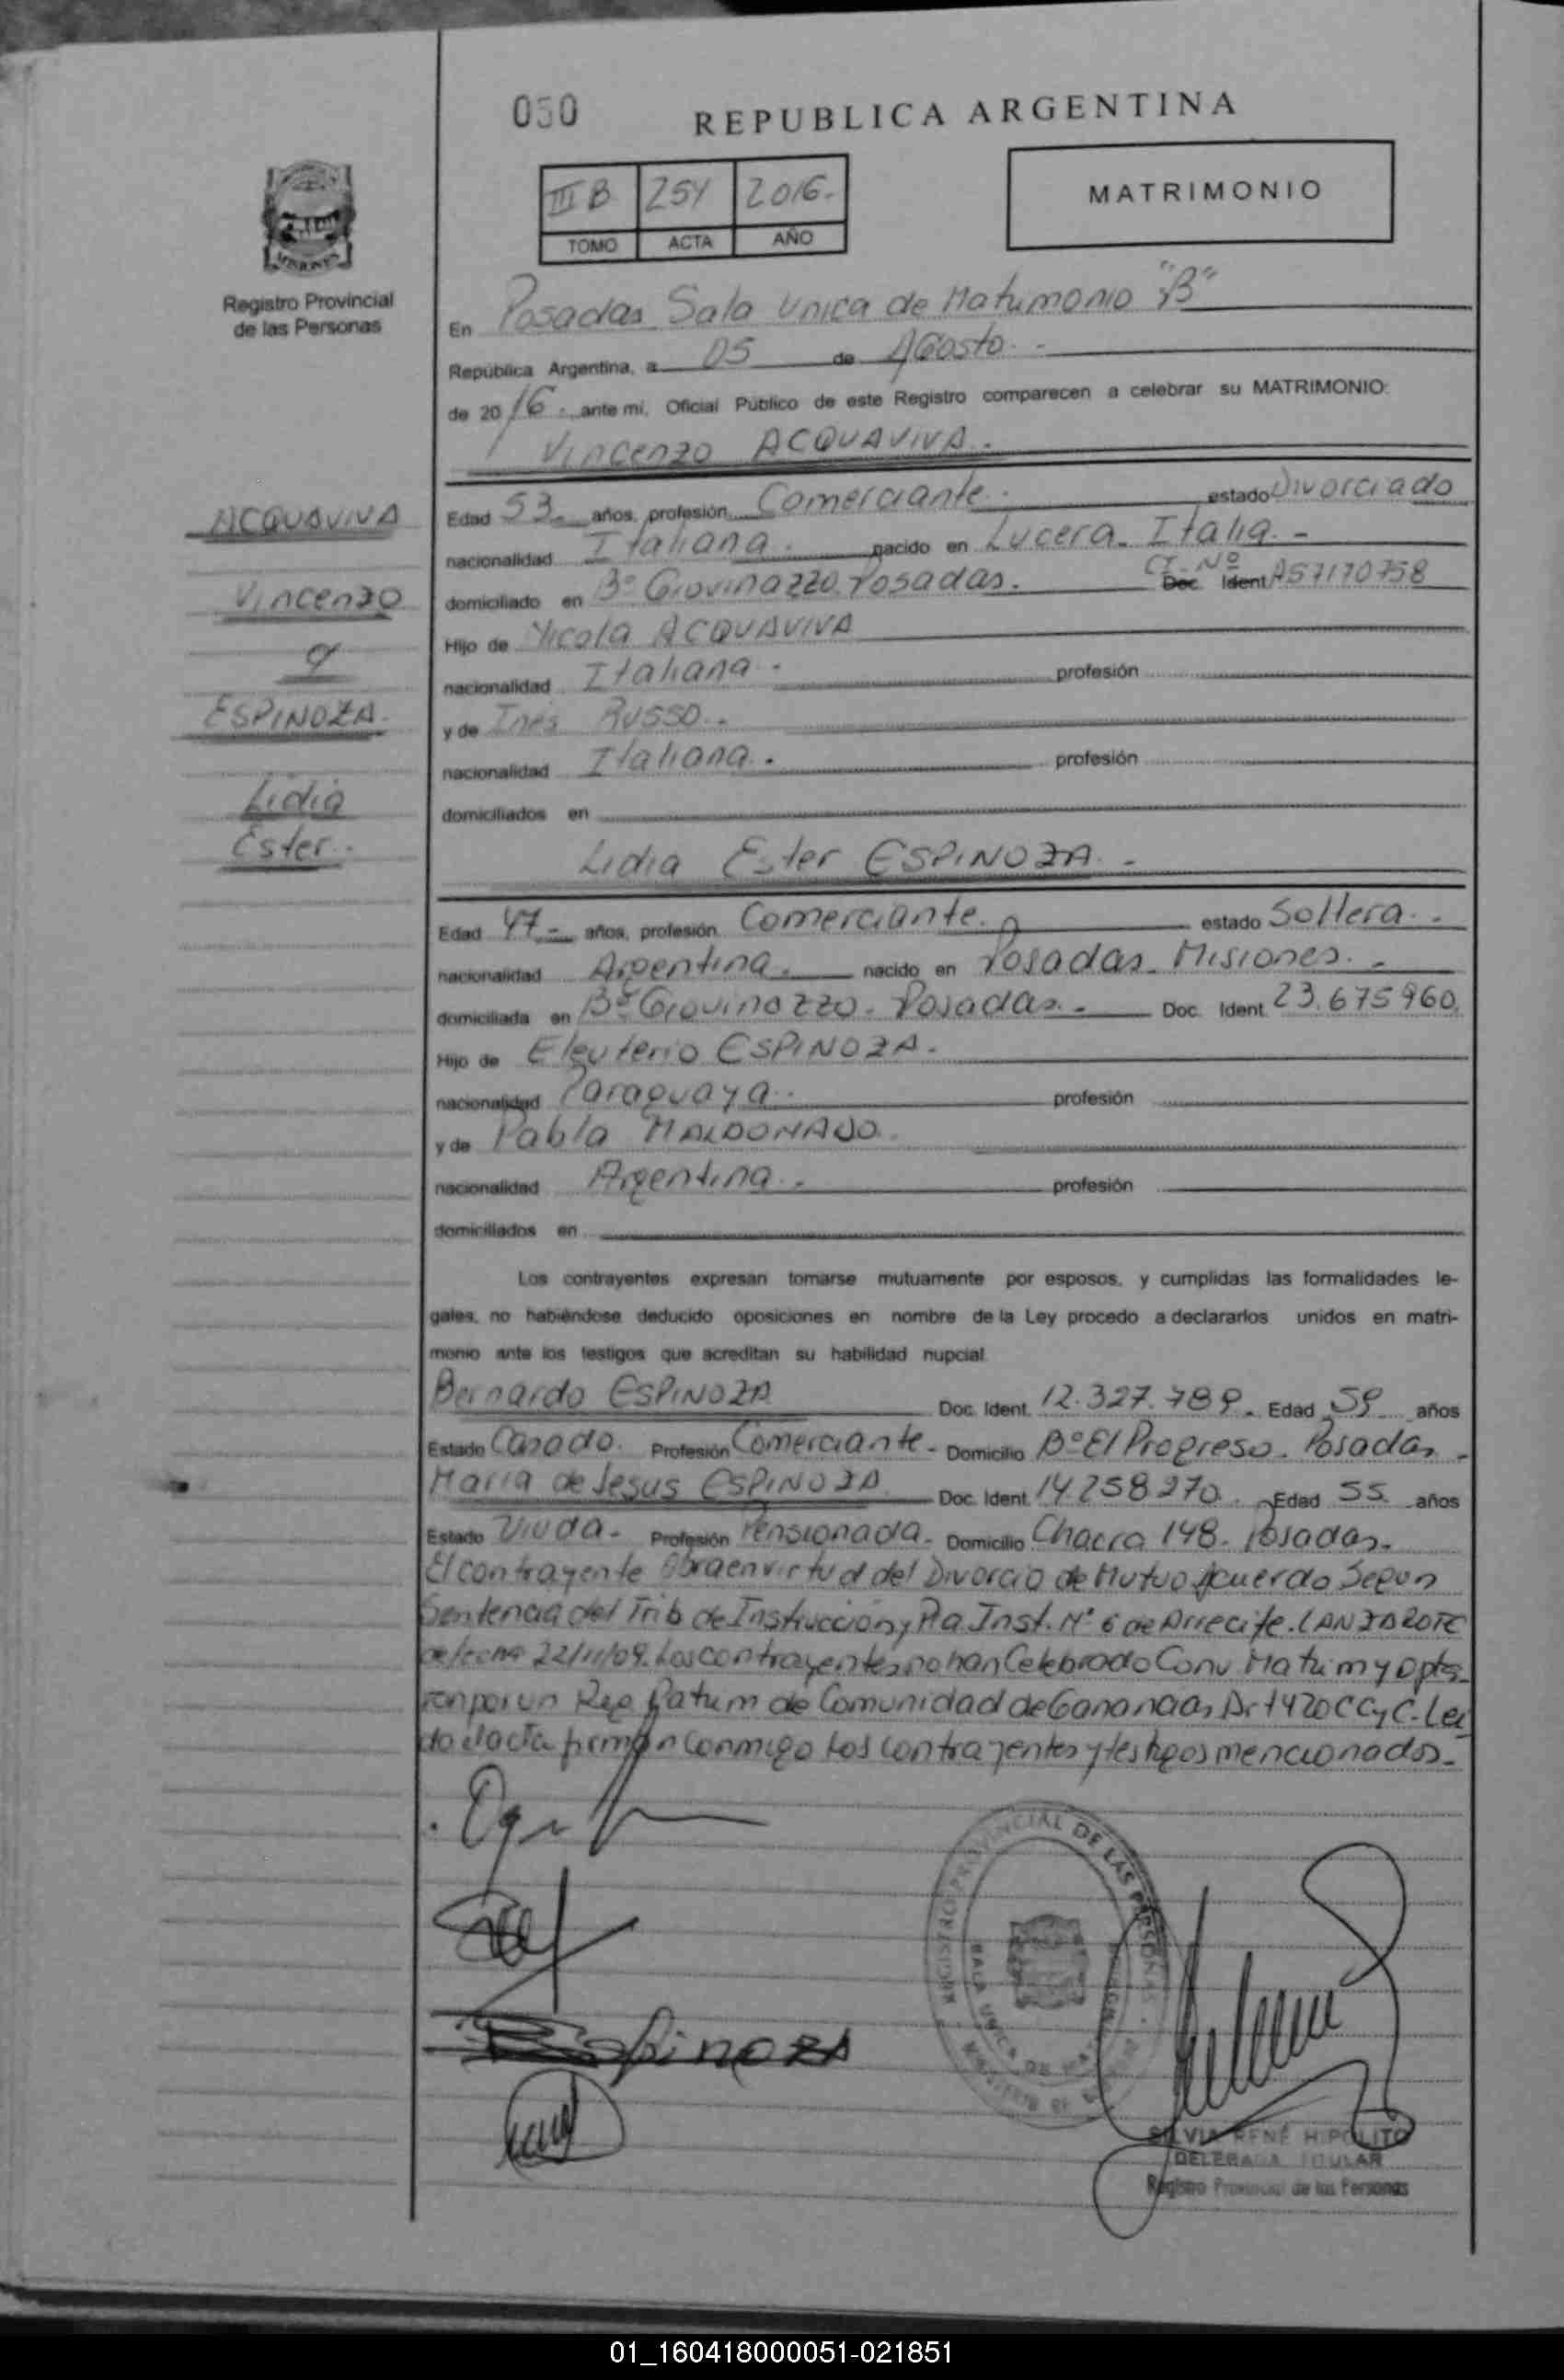 050
REPUBLICA ARGENTINA
III B 254 2016.-
TOMO ACTA AÑO
MATRIMONIO
MISIONES
Registro Provincial
de las Personas
En Posadas Sala Unica de Matrimonio "B"
República Argentina, a 05 de Agosto.-
de 2016.- ante mi, Oficial Público de este Registro comparecen a celebrar su MATRIMONIO:
Vincenzo ACQUAVIVA.-
ACQUAVIVA
Vincenzo
y
ESPINOZA.
Lidia
Ester.-
Edad 53.- años, profesión Comerciante.- estado Divorciado
nacionalidad Italiana.- nacido en Lucera. Italia.-
domiciliado en Bº Giovinazzo. Posadas. CI. Nº Doc. Ident. A57170758
Hijo de Nicola ACQUAVIVA
nacionalidad Italiana.- profesión
y de Inés RUSSO.-
nacionalidad Italiana.- profesión
domiciliados en
Lidia Ester ESPINOZA.-
Edad 47.- años, profesión Comerciante.- estado Soltera.-
nacionalidad Argentina.- nacido en Posadas. Misiones.-
domiciliada en Bº Giovinazzo. Posadas.- Doc. Ident. 23.675960.
Hijo de Eleuterio ESPINOZA.-
nacionalidad Paraguaya.- profesión
y de Pabla MALDONADO.
nacionalidad Argentina.- profesión
domiciliados en
Los contrayentes expresan tomarse mutuamente por esposos, y cumplidas las formalidades le-
gales, no habiéndose deducido oposiciones en nombre de la Ley procedo a declararlos unidos en matri-
monio ante los testigos que acreditan su habilidad nupcial
Bernardo ESPINOZA Doc. Ident. 12.327.789.- Edad 59 años
Estado Casado. Profesión Comerciante.- Domicilio Bº El Progreso. Posadas.-
Maria de Jesus ESPINOZA Doc. Ident. 14258270.- Edad 55. años
Estado Viuda.- Profesión Pensionada.- Domicilio Chacra 148. Posadas.-
El contrayente Obra en virtud del Divorcio de Mutuo Acuerdo Segun
Sentencia del Trib de Instrucción y Pra Inst. Nº 6 de Arrecife. LANZAROTE
de fecha 22/11/09. Los contrayentes no han Celebrado Conv. Matrim y opta-
ron por un Reg Patrim de Comunidad de Ganancias Art 420 CCyC. Lei
da el acta firman conmigo los contrayentes y testigos mencionados.-
Espinoza
REGISTRO PROVINCIAL DE LAS PERSONAS
SALA UNICA DE
SILVIA RENÉ HIPOLITO
DELEGADA TITULAR
Registro Provincial de las Personas
01_160418000051-021851